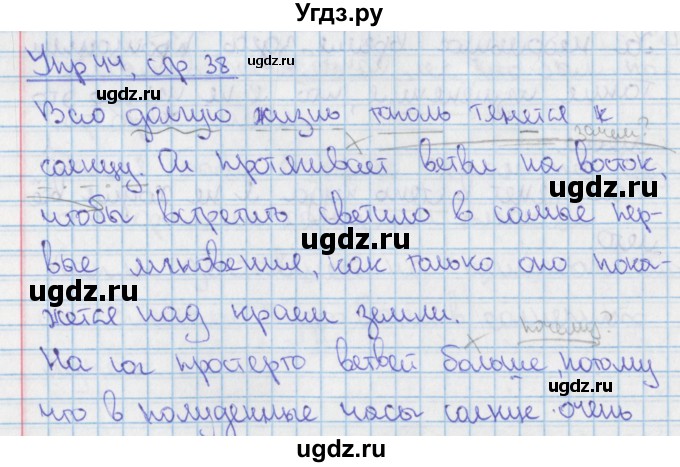 Угдз.ру
Упр 44, стр 38
ugdz.ru
ugdz.ru
Всю долгую жизнь тополь тянется к
зачем?
солнцу. Он протягивает ветви на восток,
ugdz.ru
ugdz.ru
чтобы встретить светило в самые пер-
вые мгновения, как только оно пока-
ugdz.ru
ugdz.ru
жется над краем земли.
почему?
На юг простерто ветвей больше, потому
ugdz.ru
ugdz.ru
что в полуденные часы солнце очень
ugdz.ru